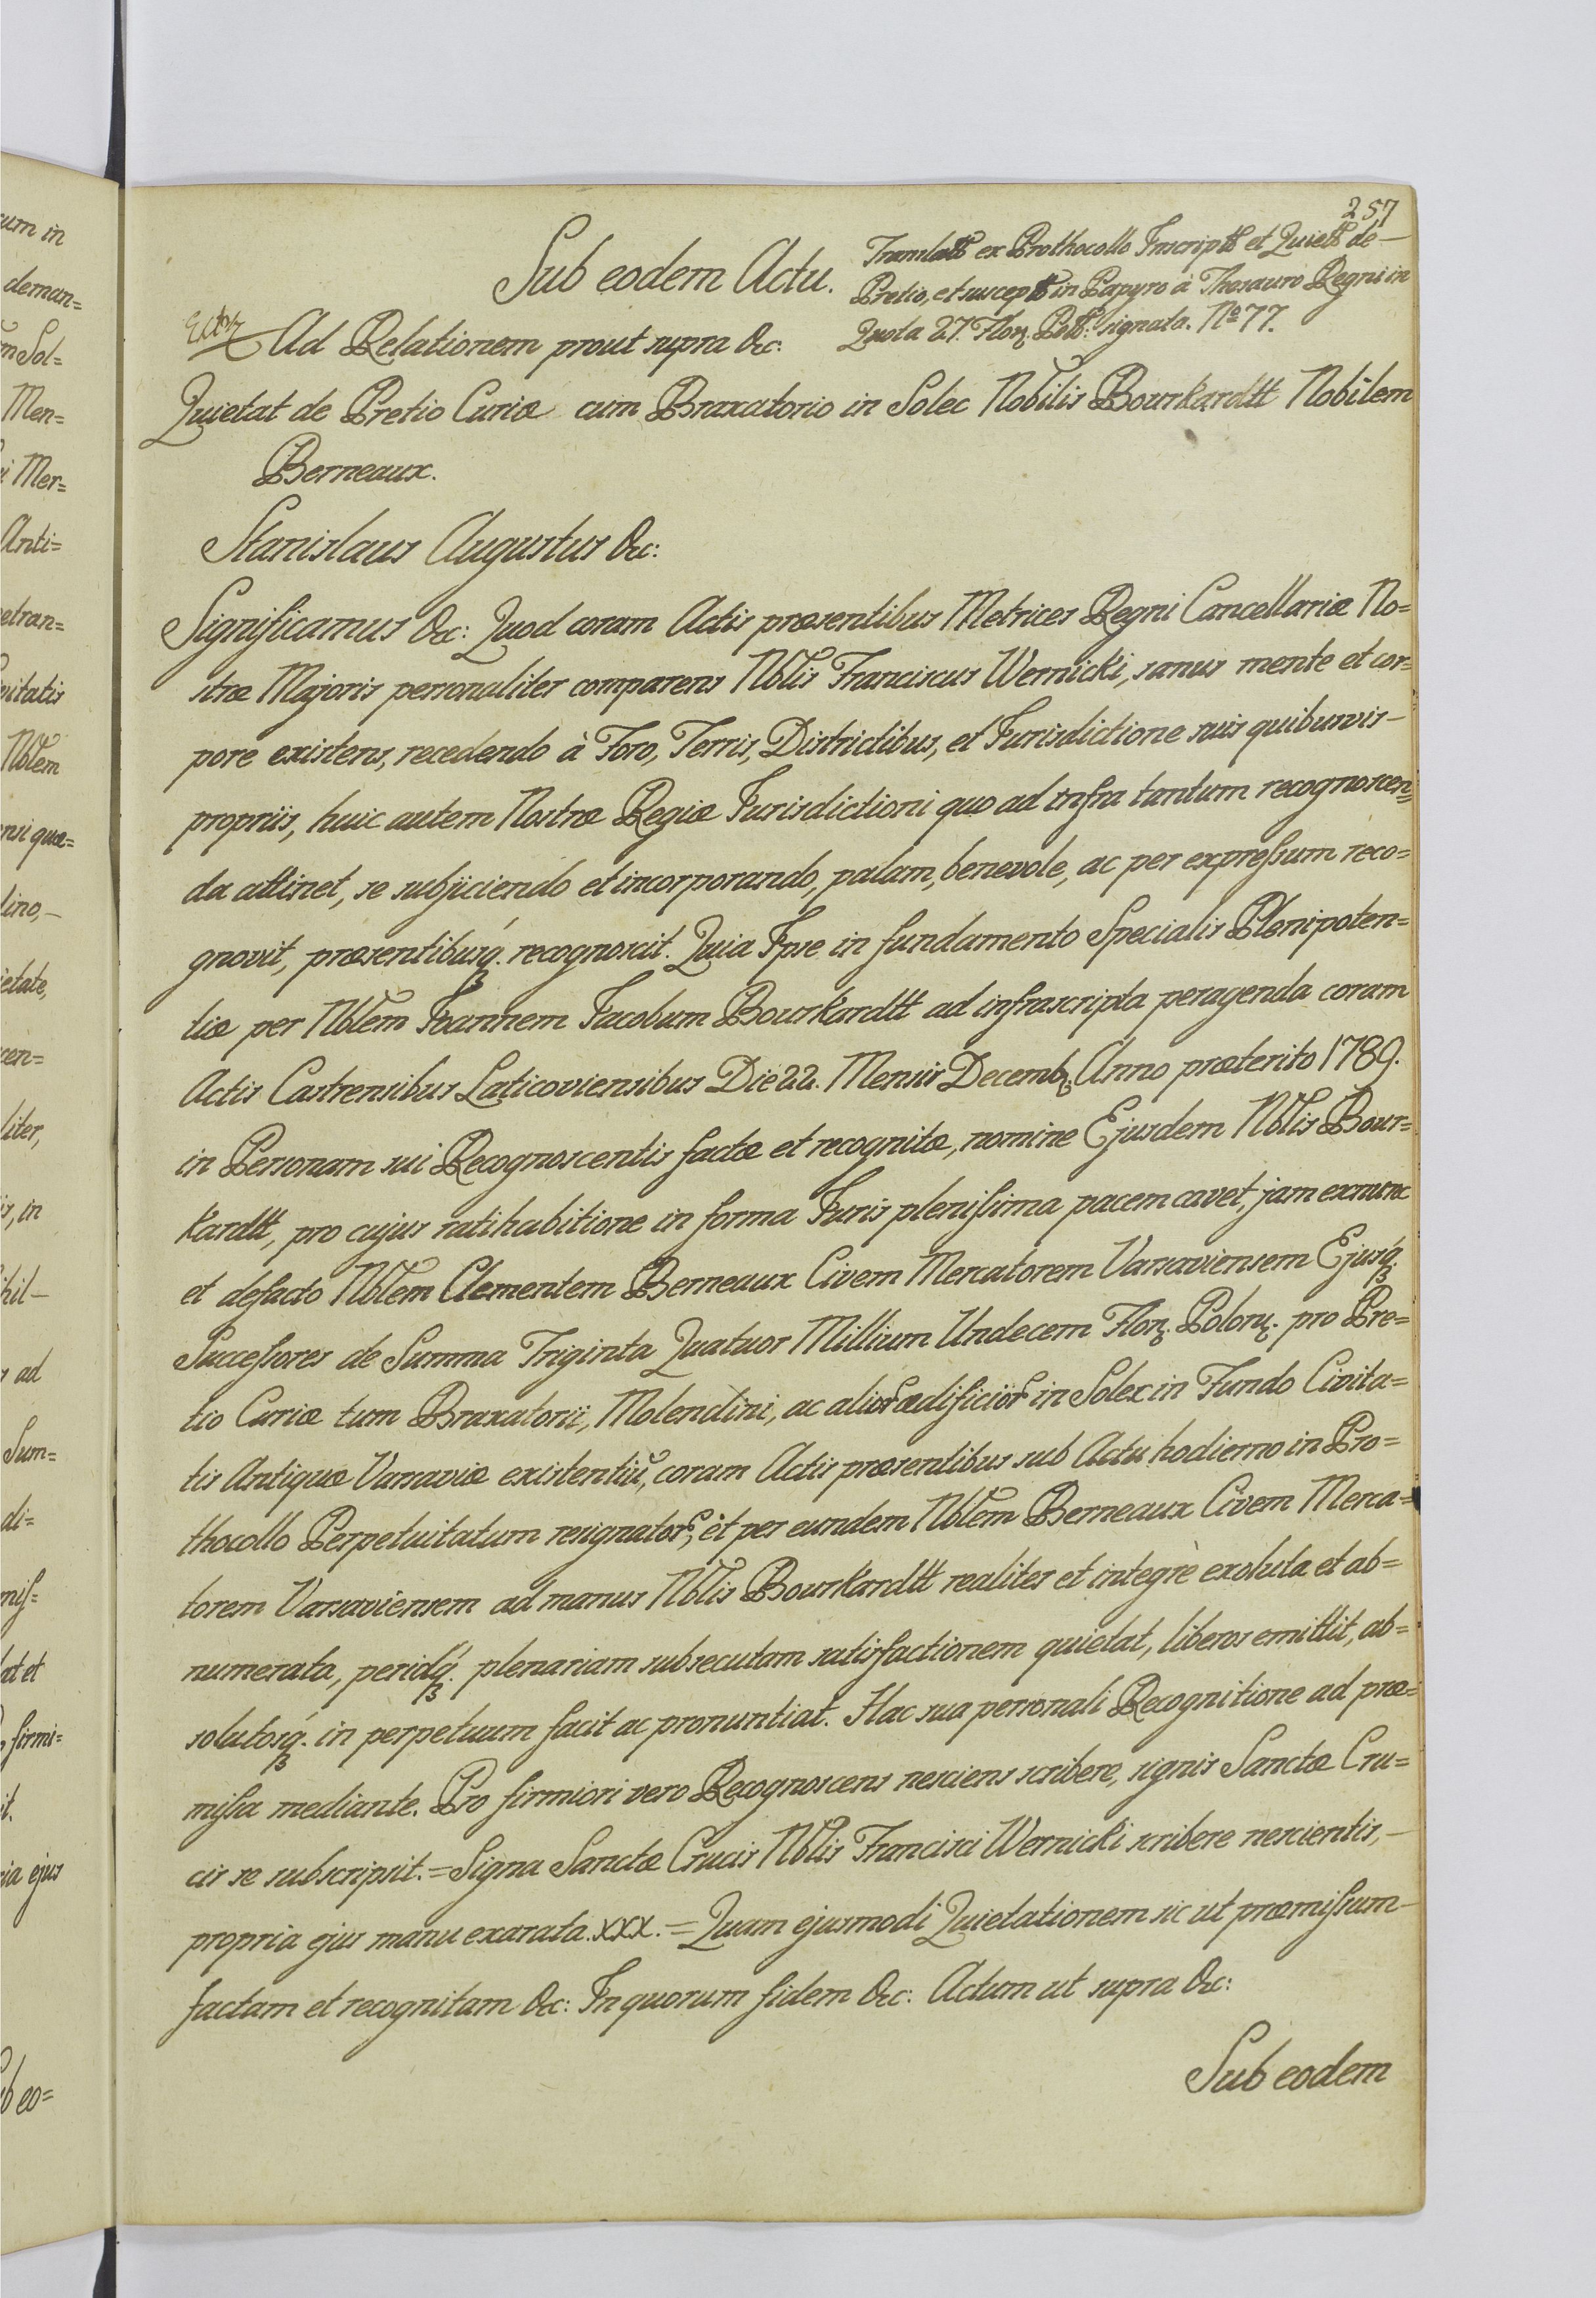 257
Sub eodem Actu.
Translatt ex Prothocollo Inscriptt et Quiett de
Pretio, et susceptt in Papyro à Thesauro Regni in
Quota 27. Flor. Poll: signata. No 77.
Ad Relationem prout supra &c:
Quietat de Pretio Curiæ cum Braxatorio in Solec Nobilis Bourkardtt Nobilem
Berneaux.
Stanislaus Augustus &c:
Significamus &c: Quod coram Actis præsentibus Metrices Regni Cancellariæ No=
stræ Majoris personaliter comparens Nblis Franciscus Wernicki, sanus mente et cor=
pore existens, recedendo à Foro, Terris, Districtibus, et Jurisdictione suis quibusvis
propriis, huic autem Nostræ Regiæ Jurisdictioni quo ad infra tantum recognoscen=
da attinet, se subjiciendo et incorporando, palam, benevole, ac per expressum reco=
gnovit, præsentibusq́. recognoscit. Quia Ipse in fundamento Specialis Plenipoten=
tiæ per Nblem Joannem Jacobum Bourkardtt ad infrascripta peragenda coram
Actis Castrensibus Laticoviensibus Die 22. Mensis Decembr. Anno præterito 1789.
in Personam sui Recognoscentis factæ et recognitæ, nomine Ejusdem Nblis Bour=
kardtt, pro cujus ratihabitione in forma Juris plenissima pacem cavet, jam ex nunc
et defacto Nblem Clementem Berneaux Civem Mercatorem Varsaviensem Ejusq́.
Successores de Summa Triginta Quatuor Millium Undecem Flor. Polon. pro Pre=
tio Curiæ tum Braxatorii, Molendini, ac alior ædificior in Solec in Fundo Civita=
tis Antiquæ Varsaviæ existentiu, coram Actis præsentibus sub Actu hodierno in Pro=
thocollo Perpetuitatum resignator, et per eundem Nblem Berneaux Civem Merca=
torem Varsaviensem ad manus Nblis Bourkardtt realiter et integrè exoluta et ab=
numerata, peridq́. plenariam subsecutam satisfactionem quietat, liberos emittit, ab=
solutosq́. in perpetuum facit ac pronuntiat. Hac sua personali Recognitione ad præ=
missa mediante. Pro firmiori vero Recognoscens nesciens scribere, signis Sanctæ Cru=
cis se subscripsit. = Signa Sanctæ Crucis Nblis Francisci Wernicki scribere nescientis,
propria ejus manu exarata. xxx. = Quam ejusmodi Quietationem sic ut præmissum
factam et recognitam &c: In quorum fidem &c: Actum ut supra &c:
Sub eodem